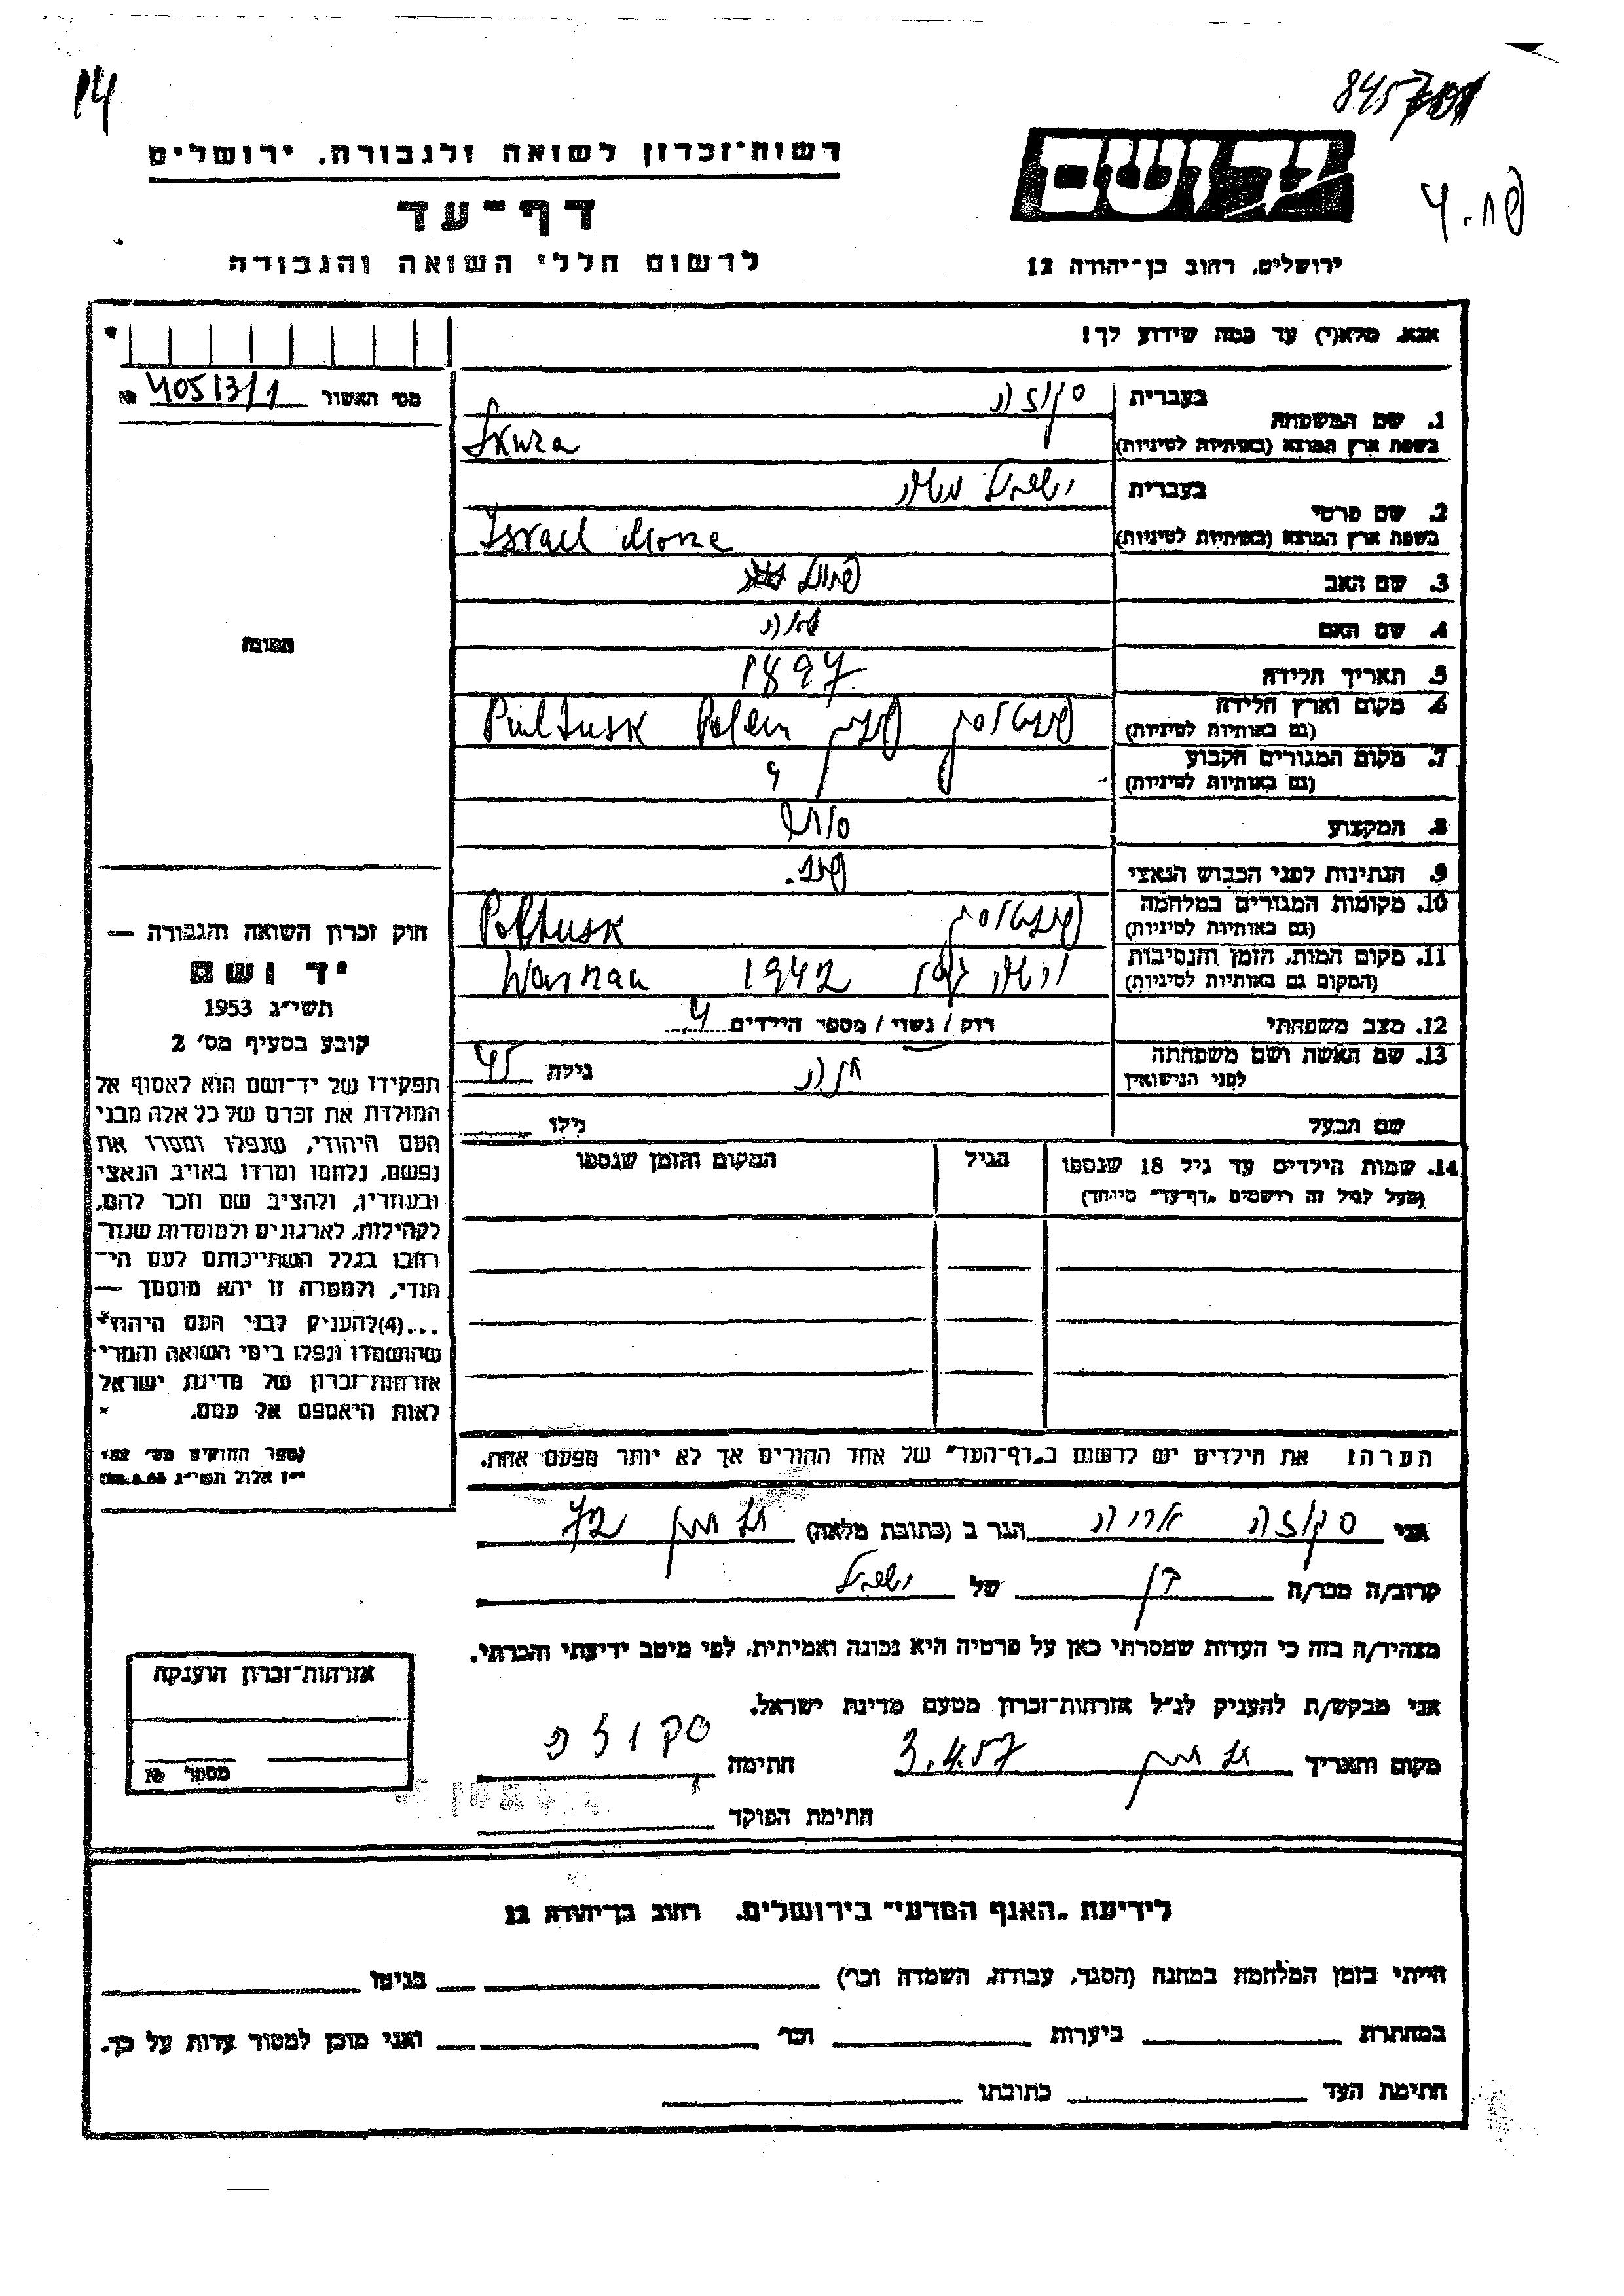 14
רשות־זכרון לשואה ולגבורה, ירושלים
דף־עד
לרשום חללי השואה והגבורה
יד ושם
ירושלים, רחוב בן־יהודה 12
אנא, מלא(י) עד כמה שידוע לך!
מס' האשור 40513/1 №
1. שם המשפחה
בעברית
סקוזה
בשפת ארץ המוצא (באותיות לטיניות)
Skuza
2. שם פרטי
בעברית
ישראל משה
בשפת ארץ המוצא (באותיות לטיניות)
Israel
3. שם האב
4. שם האם
5. תאריך הלידה 1897
6. מקום וארץ הלידה
(גם באותיות לטיניות)
פולטוסק פולין Pultusk Polen
7. מקום המגורים הקבוע
(גם באותיות לטיניות)
8. המקצוע סוחר
9. הנתינות לפני הכבוש הנאצי פול.
10. מקומות המגורים במלחמה
(גם באותיות לטיניות)
פולטוסק Poltusk
11. מקום המות, הזמן והנסיבות
(המקום גם באותיות לטיניות)
1942
12. מצב משפחתי רווק / נשוי / מספר הילדים 4
13. שם האשה ושם משפחתה
לפני הנישואין
חנה גילה 45
שם הבעל גילו
14. שמות הילדים עד גיל 18 שנספו
(מעל לגיל זה רושמים "דף־עד" מיוחד)
הגיל
המקום והזמן שנספו
הערה: את הילדים יש לרשום ב"דף־העד" של אחד ההורים אך לא יותר מפעם אחת.
תמונה
חוק זכרון השואה והגבורה —
יד ושם
תשי"ג 1953
קובע בסעיף מס' 2
תפקידו של יד־ושם הוא לאסוף אל
המולדת את זכרם של כל אלה מבני
העם היהודי, שנפלו ומסרו את
נפשם, נלחמו ומרדו באויב הנאצי
ובעוזריו, ולהציב שם וזכר להם,
לקהילות, לארגונים ולמוסדות שנח־
רבו בגלל השתייכותם לעם הי־
הודי, ולמטרה זו יהא מוסמך —
...(4) להעניק לבני העם היהודי
שהושמדו ונפלו בימי השואה והמרי
אזרחות־זכרון של מדינת ישראל
לאות היאספם אל עמם.
(ספר החוקים מס' 132
י"ז אלול תשי"ג 28.8.53)
אני סקוזה אריה הגר ב (כתובת מלאה) 72
קרוב/ה מכר/ה בן של ישראל
מצהיר/ה בזה כי העדות שמסרתי כאן על פרטיה היא נכונה ואמיתית, לפי מיטב ידיעתי והכרתי.
אני מבקש/ת להעניק לנ"ל אזרחות־זכרון מטעם מדינת ישראל.
מקום ותאריך 3.4.57 חתימה סקוזה
חתימת הפוקד
אזרחות־זכרון הוענקה
מספר №
לידיעת "האגף המדעי" בירושלים, רחוב בן־יהודה 12
הייתי בזמן המלחמה במחנה (הסגר, עבודה, השמדה וכו') בגיטו
במחתרת ביערות וכו' ואני מוכן למסור עדות על כך.
חתימת העד כתובתו